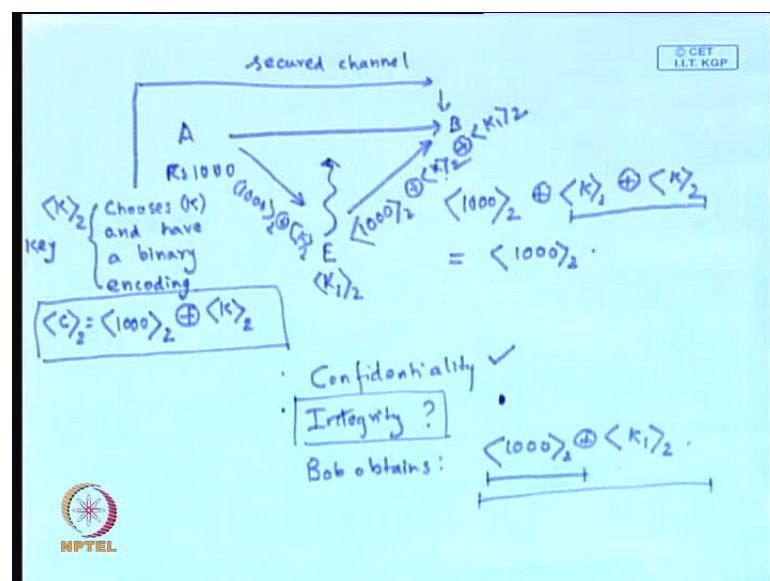 secured channel
© CET
I.I.T. KGP
A
B
Rs 1000
⟨1000⟩₂ ⊕ ⟨K⟩₂
⟨1000⟩₂ ⊕ ⟨K⟩₂ ⊕ ⟨K₁⟩₂
E
⟨K₁⟩₂
⟨K⟩₂
key
Chooses (K)
and have
a binary
encoding.
⟨1000⟩₂ ⊕ ⟨K⟩₂ ⊕ ⟨K⟩₂
= ⟨1000⟩₂ .
⟨C⟩₂ = ⟨1000⟩₂ ⊕ ⟨K⟩₂
· Confidentiality ✓
· Integrity ?
Bob obtains: ⟨1000⟩₂ ⊕ ⟨K₁⟩₂ .
NPTEL